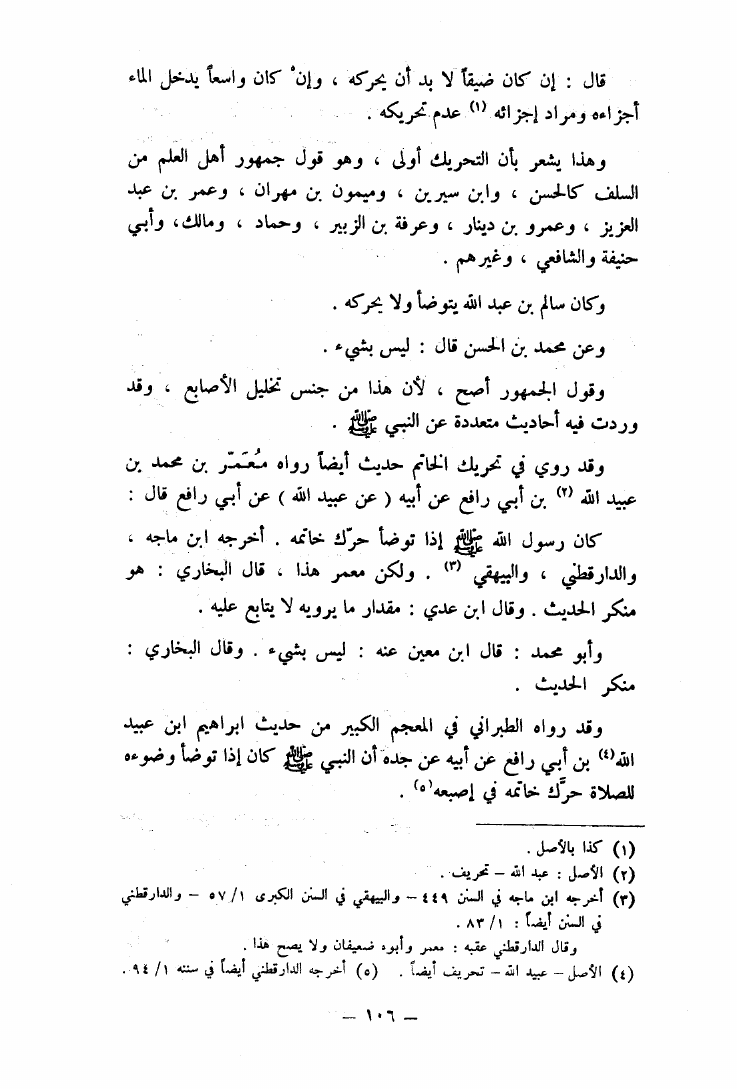 قال : إن كان ضيقاً لا بد أن يحركه ، وإنْ كان واسعاً يدخل الماء
أجزاءه ومراد إجزائه (١) عدم تحريكه .
وهذا يشعر بأن التحريك أولى ، وهو قول جمهور أهل العلم من
السلف كالحسن ، وابن سيرين ، وميمون بن مهران ، وعمر بن عبد
العزيز ، وعمرو بن دينار ، وعرفة بن الزبير ، وحماد ، ومالك، وأبي
حنيفة والشافعي ، وغيرهم .
وكان سالم بن عبد الله يتوضأ ولا يحركه .
وعن محمد بن الحسن قال : ليس بشيء .
وقول الجمهور أصح ، لأن هذا من جنس تخليل الأصابع ، وقد
وردت فيه أحاديث متعددة عن النبي ﷺ .
وقد روي في تحريك الخاتم حديث أيضاً رواه مُعَمَّر بن محمد بن
عبيد الله (٢) بن أبي رافع عن أبيه ( عن عبيد الله ) عن أبي رافع قال :
كان رسول الله ﷺ إذا توضأ حرّك خاتمه . أخرجه ابن ماجه ،
والدارقطني ، والبيهقي (٣) . ولكن معمر هذا ، قال البخاري : هو
منكر الحديث . وقال ابن عدي : مقدار ما يرويه لا يتابع عليه .
وأبو محمد : قال ابن معين عنه : ليس بشيء . وقال البخاري :
منكر الحديث .
وقد رواه الطبراني في المعجم الكبير من حديث ابراهيم ابن عبيد
الله(٤) بن أبي رافع عن أبيه عن جده أن النبي ﷺ كان إذا توضأ وضوءه
للصلاة حرَّك خاتمه في إصبعه(٥) .
(١) كذا بالأصل .
(٢) الأصل : عبد الله – تحريف .
(٣) أخرجه ابن ماجه في السنن ٤٤٩ – والبيهقي في السنن الكبرى ١/ ٥٧ – والدارقطني
في السنن أيضاً : ١/ ٨٣ .
وقال الدارقطني عقبه : معمر وأبوه ضعيفان ولا يصح هذا .
(٤) الأصل – عبيد الله – تحريف أيضاً . (٥) أخرجه الدارقطني أيضاً في سننه ١/ ٩٤ .
– ١٠٦ –